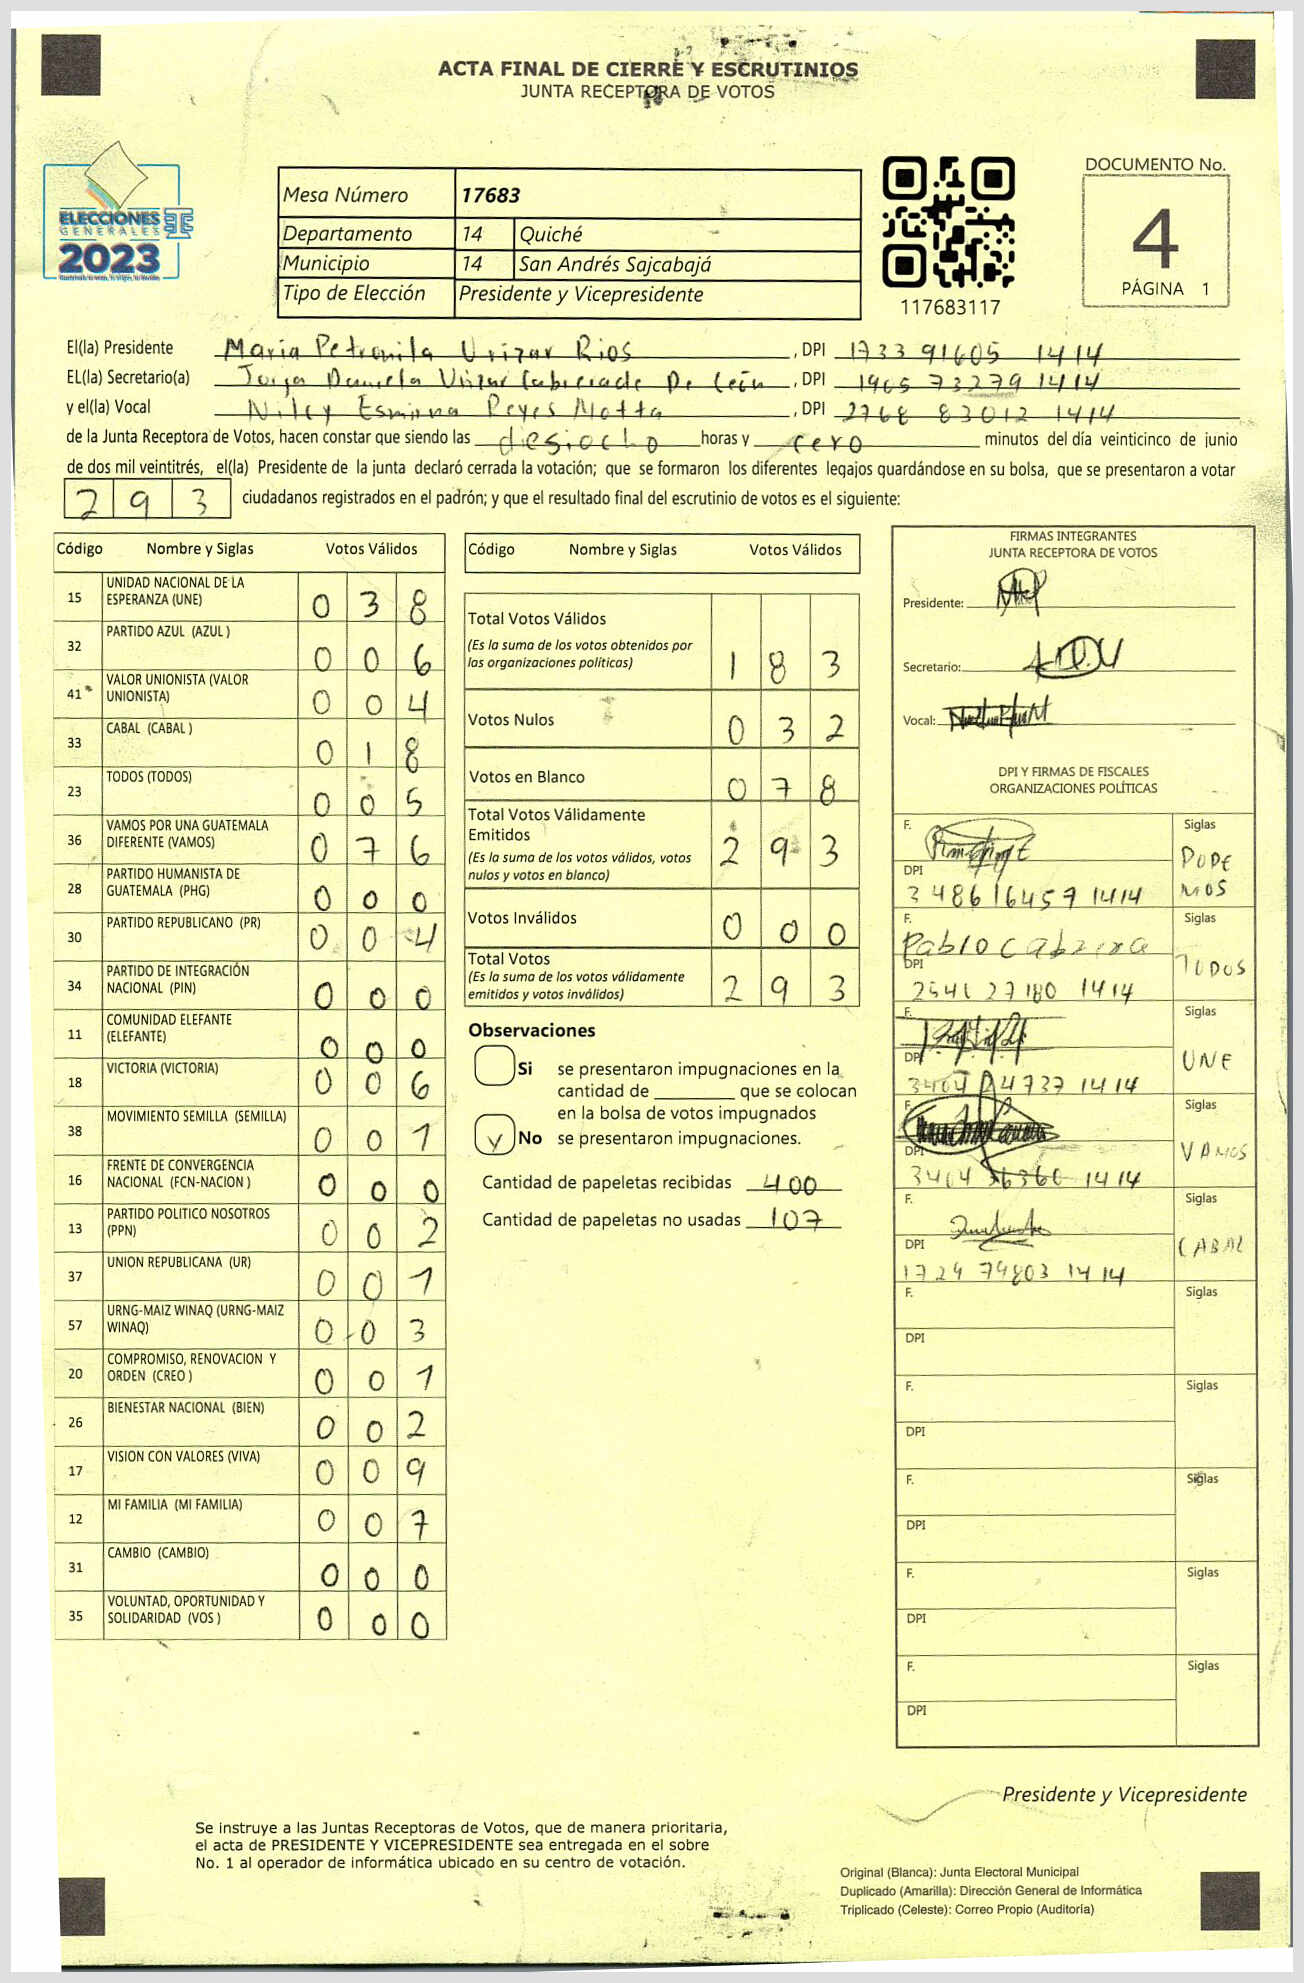 ACTA FINAL DE CIERRE Y ESCRUTINIOS
JUNTA RECEPTORA DE VOTOS
ELECCIONES
GENERALES
2023
Mesa Número 17683
Departamento 14 Quiché
Municipio 14 San Andrés Sajcabajá
Tipo de Elección Presidente y Vicepresidente
117683117
DOCUMENTO No.
4
PÁGINA 1
El(la) Presidente María Petronila Urizar Rios, DPI 1733 91605 1414
EL(la) Secretario(a) Daniela Urizar De León, DPI 1965 73279 1414
y el(la) Vocal Reyes Motta, DPI 2768 83012 1414
de la Junta Receptora de Votos, hacen constar que siendo las desiocho horas y cero minutos del día veinticinco de junio
de dos mil veintitrés, el(la) Presidente de la junta declaró cerrada la votación; que se formaron los diferentes legajos quardándose en su bolsa, que se presentaron a votar
293 ciudadanos registrados en el padrón; y que el resultado final del escrutinio de votos es el siguiente:
Código Nombre y Siglas Votos Válidos
15 UNIDAD NACIONAL DE LA ESPERANZA (UNE) 0 3 8
32 PARTIDO AZUL (AZUL ) 0 0 6
41 VALOR UNIONISTA (VALOR UNIONISTA) 0 0 4
33 CABAL (CABAL ) 0 1 8
23 TODOS (TODOS) 0 0 5
36 VAMOS POR UNA GUATEMALA DIFERENTE (VAMOS) 0 7 6
28 PARTIDO HUMANISTA DE GUATEMALA (PHG) 0 0 0
30 PARTIDO REPUBLICANO (PR) 0 0 4
34 PARTIDO DE INTEGRACIÓN NACIONAL (PIN) 0 0 0
11 COMUNIDAD ELEFANTE (ELEFANTE) 0 0 0
18 VICTORIA (VICTORIA) 0 0 6
38 MOVIMIENTO SEMILLA (SEMILLA) 0 0 1
16 FRENTE DE CONVERGENCIA NACIONAL (FCN-NACION ) 0 0 0
13 PARTIDO POLITICO NOSOTROS (PPN) 0 0 2
37 UNION REPUBLICANA (UR) 0 0 1
57 URNG-MAIZ WINAQ (URNG-MAIZ WINAQ) 0 0 3
20 COMPROMISO, RENOVACION Y ORDEN (CREO ) 0 0 1
26 BIENESTAR NACIONAL (BIEN) 0 0 2
17 VISION CON VALORES (VIVA) 0 0 9
12 MI FAMILIA (MI FAMILIA) 0 0 7
31 CAMBIO (CAMBIO) 0 0 0
35 VOLUNTAD, OPORTUNIDAD Y SOLIDARIDAD (VOS ) 0 0 0
Código Nombre y Siglas Votos Válidos
Total Votos Válidos 1 8 3
(Es la suma de los votos obtenidos por
las organizaciones políticas)
Votos Nulos 0 3 2
Votos en Blanco 0 7 8
Total Votos Válidamente
Emitidos 2 9 3
(Es la suma de los votos válidos, votos
nulos y votos en blanco)
Votos Inválidos 0 0 0
Total Votos 2 9 3
(Es la suma de los votos válidamente
emitidos y votos inválidos)
Observaciones
Si se presentaron impugnaciones en la
cantidad de ________ que se colocan
en la bolsa de votos impugnados
No se presentaron impugnaciones.
Cantidad de papeletas recibidas 400
Cantidad de papeletas no usadas 107
FIRMAS INTEGRANTES
JUNTA RECEPTORA DE VOTOS
Presidente:
Secretario:
Vocal:
DPI Y FIRMAS DE FISCALES
ORGANIZACIONES POLÍTICAS
F. Siglas PODEMOS
DPI 3486 16457 1414
F. Pablo Cabrera Siglas TODOS
DPI 2541 27180 1414
F. Siglas UNE
DPI 4737 1414
F. Siglas VAMOS
DPI 3404 36360 1414
F. Siglas CABAL
DPI 1724 79803 1414
F. Siglas
DPI
F. Siglas
DPI
F. Siglas
DPI
F. Siglas
DPI
F. Siglas
DPI
Presidente y Vicepresidente
Se instruye a las Juntas Receptoras de Votos, que de manera prioritaria,
el acta de PRESIDENTE Y VICEPRESIDENTE sea entregada en el sobre
No. 1 al operador de informática ubicado en su centro de votación.
Original (Blanca): Junta Electoral Municipal
Duplicado (Amarilla): Dirección General de Informática
Triplicado (Celeste): Correo Propio (Auditoría)